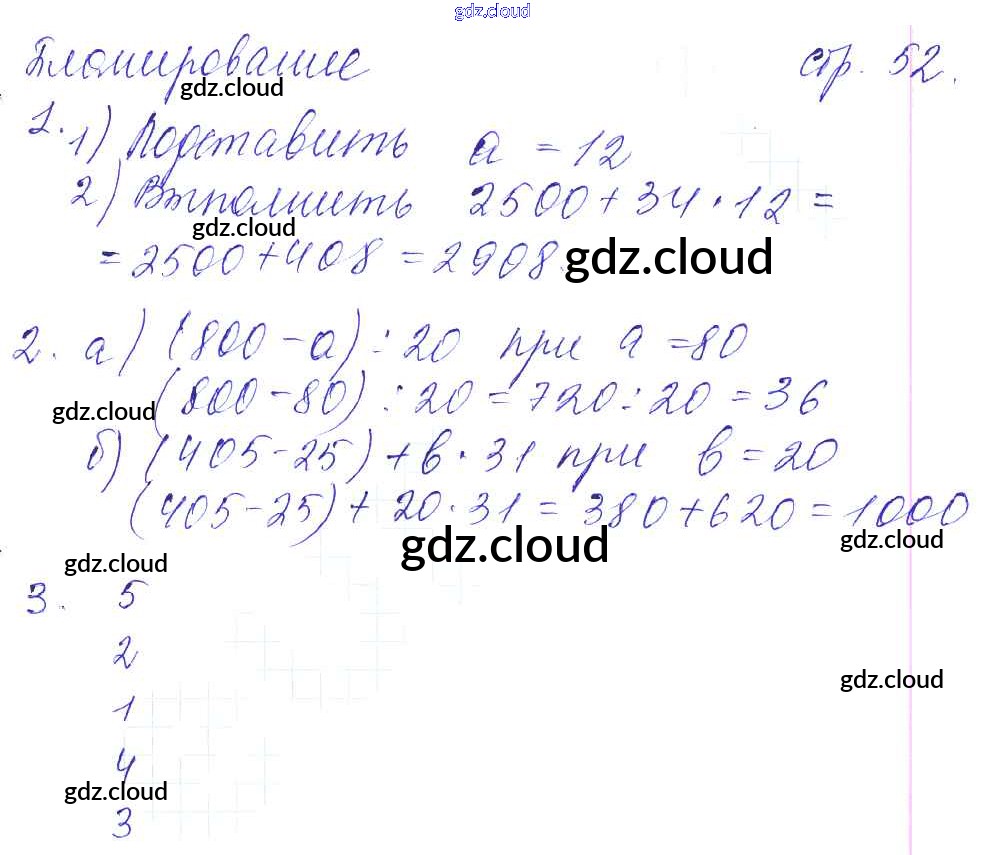 gdz.cloud
Планирование стр. 52.
gdz.cloud
1. 1) Подставить a = 12
2) Выполнить 2500 + 34 · 12 =
gdz.cloud
= 2500 + 408 = 2908. gdz.cloud
2. а) (800 - a) : 20 при a = 80
gdz.cloud (800 - 80) : 20 = 720 : 20 = 36
б) (405 - 25) + в · 31 при в = 20
(405 - 25) + 20 · 31 = 380 + 620 = 1000
gdz.cloud gdz.cloud
gdz.cloud
3. 5
2
gdz.cloud
1
4
gdz.cloud
3